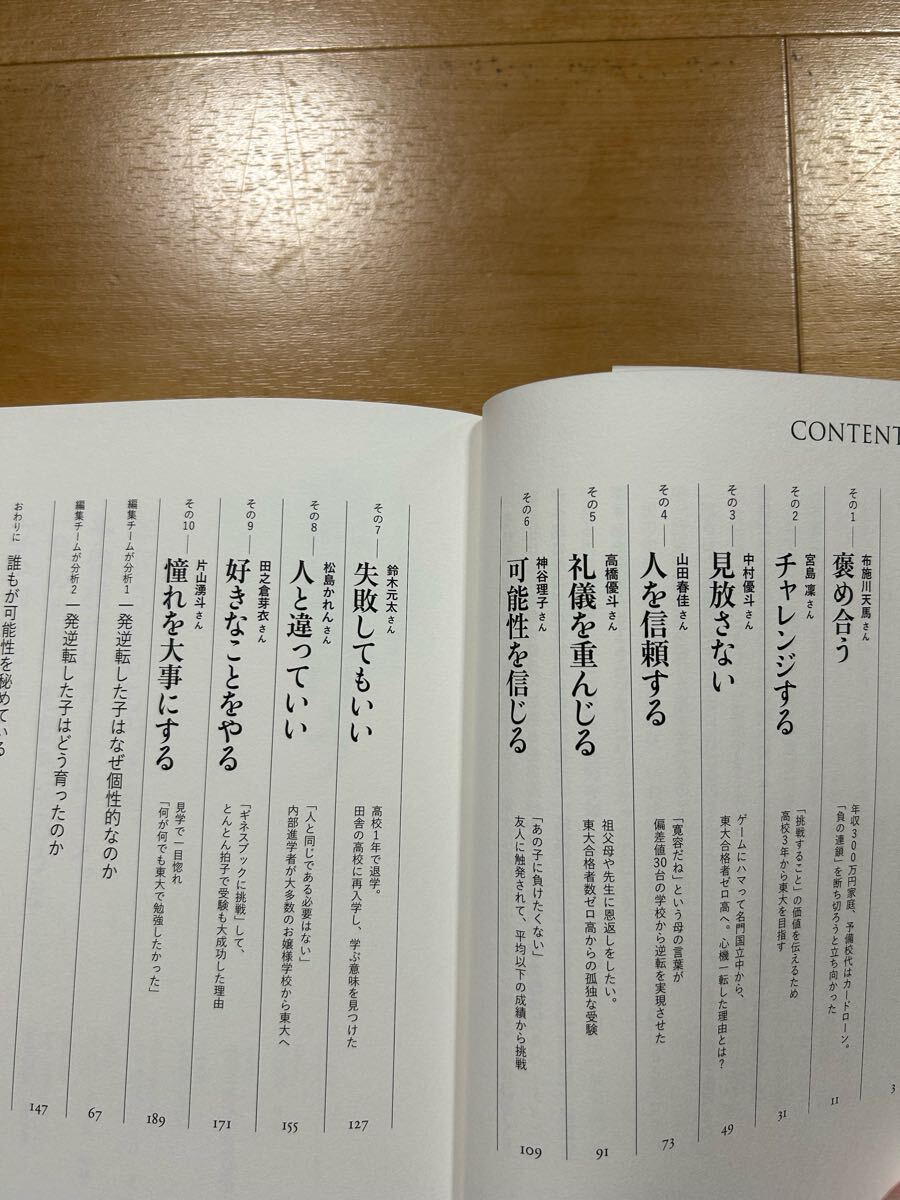 CONTENT
3
その1
布施川天馬さん
褒め合う
年収300万円家庭、予備校代はカードローン。
「負の連鎖」を断ち切ろうと立ち向かった
11
その2
宮島 凜さん
チャレンジする
「挑戦すること」の価値を伝えるため
高校3年から東大を目指す
31
その3
中村優斗さん
見放さない
ゲームにハマって名門国立中から、
東大合格者ゼロ高へ。心機一転した理由とは?
49
その4
山田春佳さん
人を信頼する
「寛容だね」という母の言葉が
偏差値30台の学校から逆転を実現させた
73
その5
高橋優斗さん
礼儀を重んじる
祖父母や先生に恩返しをしたい。
東大合格者数ゼロ高からの孤独な受験
91
その6
神谷理子さん
可能性を信じる
「あの子に負けたくない」
友人に触発されて、平均以下の成績から挑戦
109
その7
鈴木元太さん
失敗してもいい
高校1年で退学。
田舎の高校に再入学し、学ぶ意味を見つけた
127
その8
松島かれんさん
人と違っていい
「人と同じである必要はない」
内部進学者が大多数のお嬢様学校から東大へ
155
その9
田之倉芽衣さん
好きなことをやる
「ギネスブックに挑戦」して、
とんとん拍子で受験も大成功した理由
171
その10
片山湧斗さん
憧れを大事にする
見学で一目惚れ
「何が何でも東大で勉強したかった」
189
編集チームが分析1
一発逆転した子はなぜ個性的なのか
67
編集チームが分析2
一発逆転した子はどう育ったのか
147
おわりに
誰もが可能性を秘めている